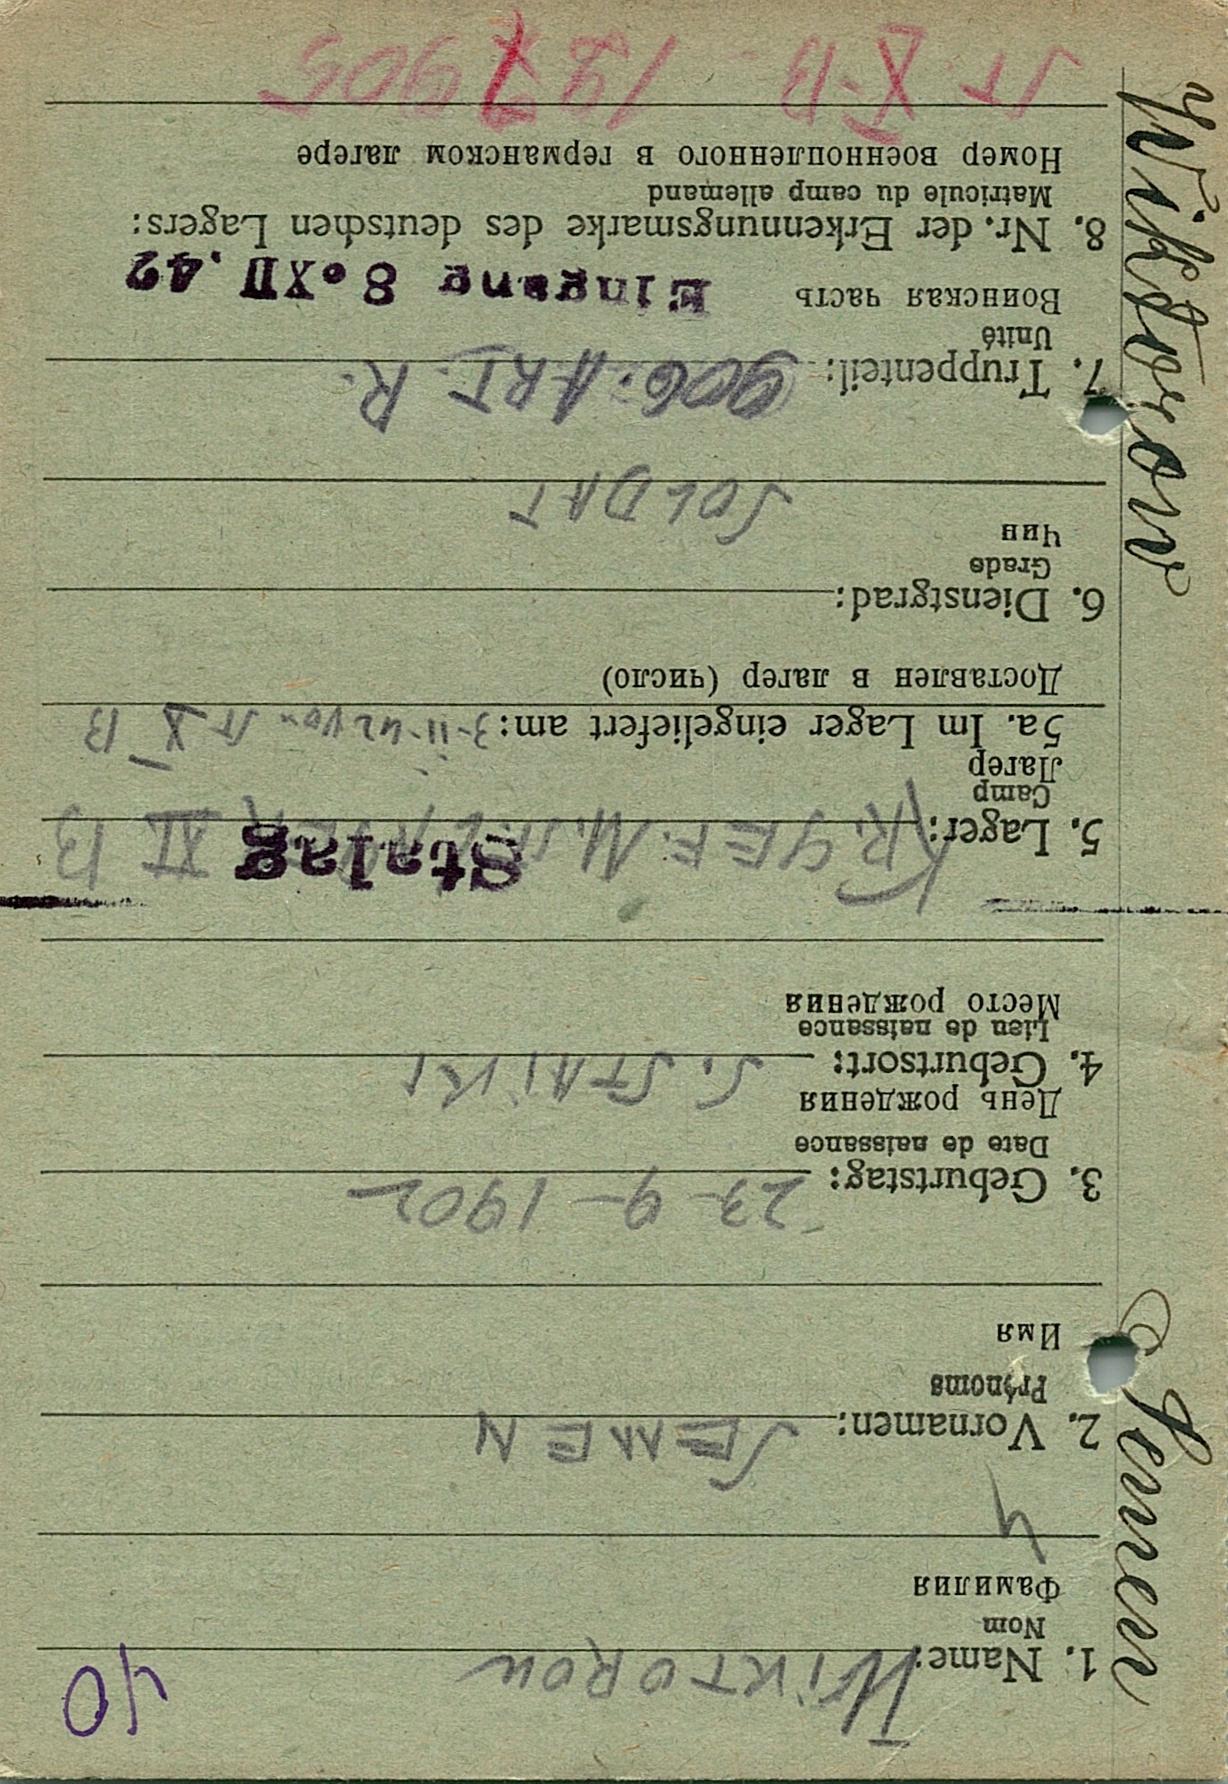 40
1. Name: WIKTOROW
Nom
Фамилия
4
2. Vornamen: SEMEN
Prénoms
Имя
3. Geburtstag: 23-9-1902
Date de naissance
День рождения
4. Geburtsort: S. STAIKI
Lieu de naissance
Место рождения
5. Lager: KR. GEF. M. ST. Stalag XI B
Camp
Лагер
5a. Im Lager eingeliefert am: 3-11-42 von St X B
Доставлен в лагер (число)
6. Dienstgrad:
Grade
Чин
SOLDAT
7. Truppenteil: 906. ART. R.
Unité
Воинская часть Eingang 8.XII.42
8. Nr. der Erkennungsmarke des deutschen Lagers:
Matricule du camp allemand
Номер военнопленного в германском лагере
St. X-B - 127905
Wiktorow Semen